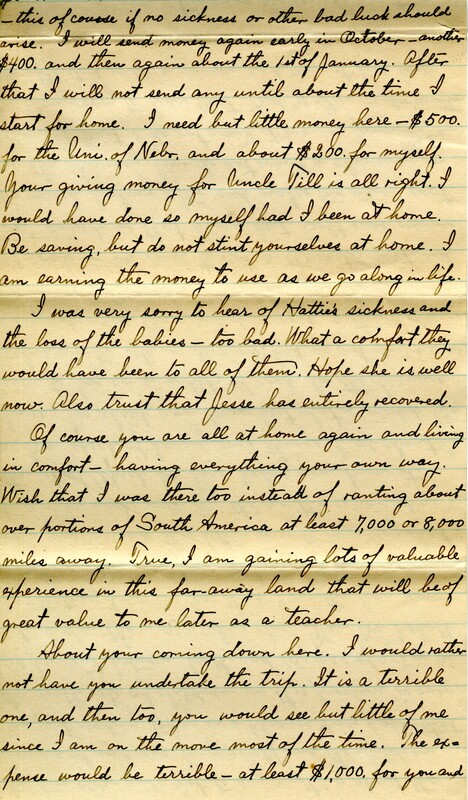 - this of course if no sickness or other bad luck should
arise. I will send money again early in October - another
$400. and then again about the 1st of January. After
that I will not send any until about the time I
start for home. I need but little money here - $500.
for the Uni. of Nebr. and about $200. for myself.
Your giving money for Uncle Till is all right. I
would have done so myself had I been at home.
Be saving, but do not stint yourselves at home. I
am earning the money to use as we go along in life.
I was very sorry to hear of Hattie's sickness and
the loss of the babies - too bad. What a comfort they
would have been to all of them. Hope she is well
now. Also trust that Jesse has entirely recovered.
Of course you are all at home again and living
in comfort - having everything your own way.
Wish that I was there too instead of ranting about
over portions of South America at least 7,000 or 8,000
miles away. True, I am gaining lots of valuable
experience in this far-away land that will be of
great value to me later as a teacher.
About your coming down here. I would rather
not have you undertake the trip. It is a terrible
one, and then too, you would see but little of me
since I am on the move most of the time. The ex=
pense would be terrible - at least $1,000. for you and